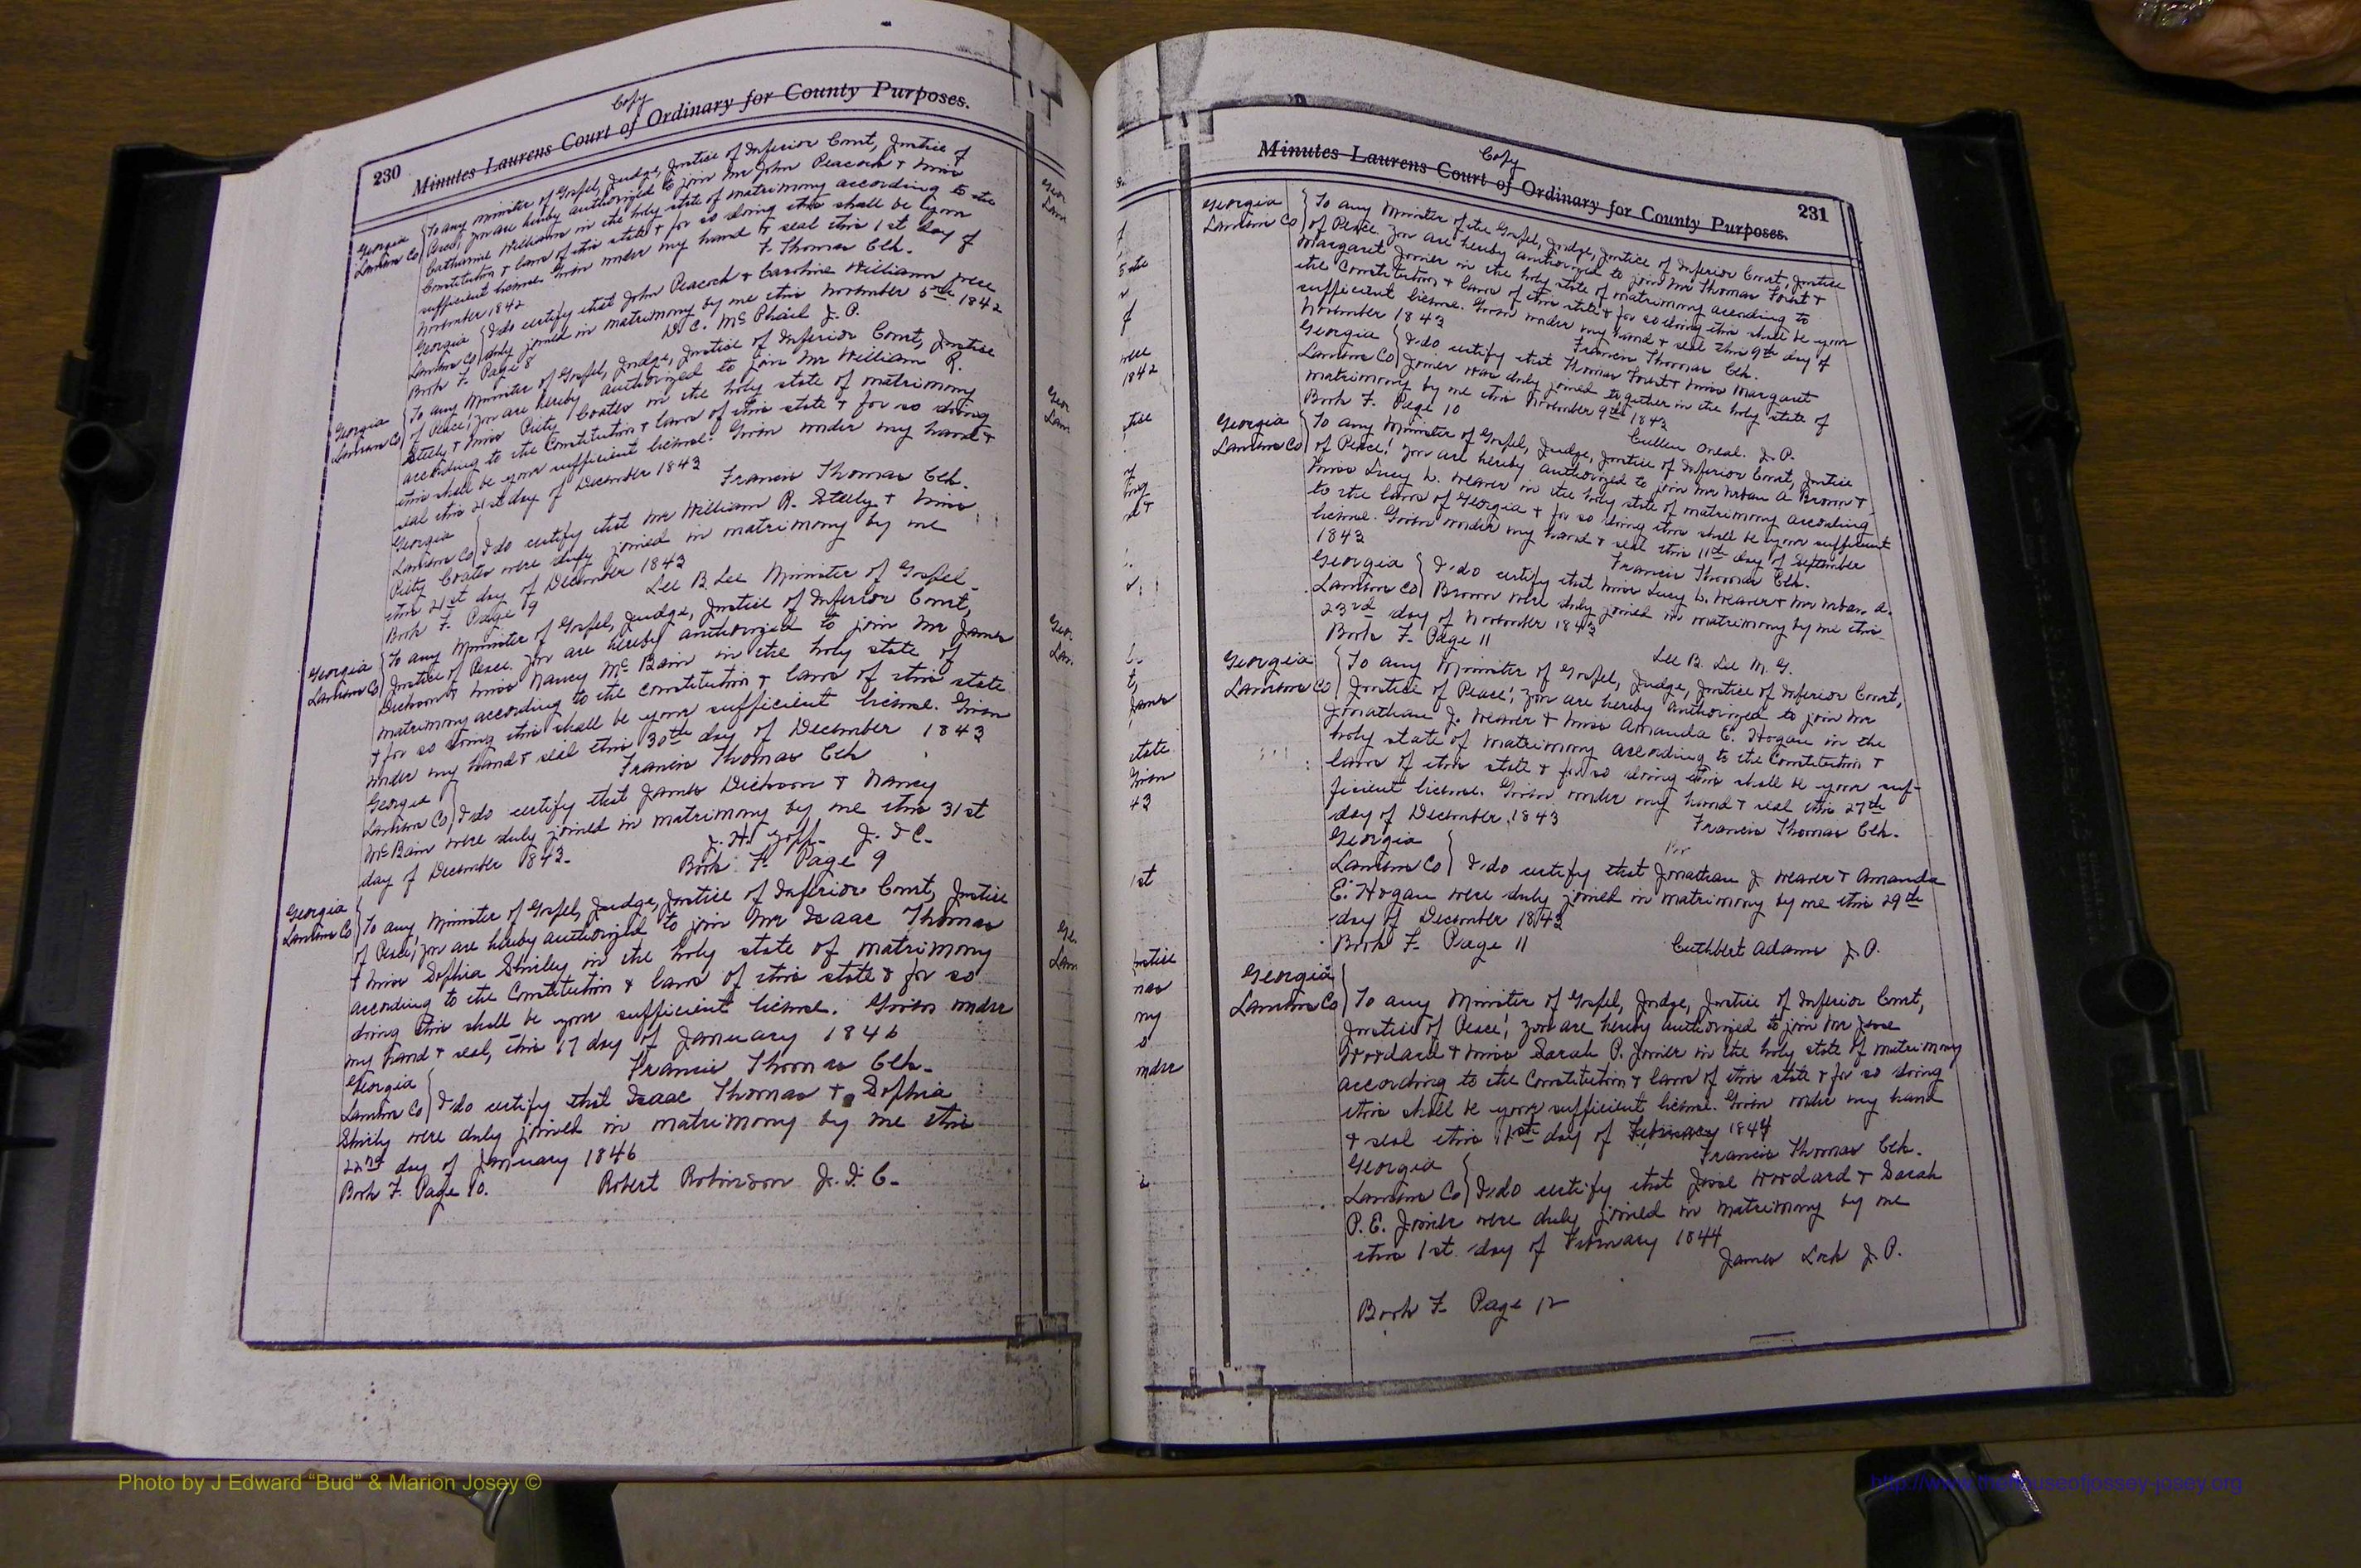 Copy
230 Minutes Laurens Court of Ordinary for County Purposes.
Georgia
Laurens Co
To any minister of Gospel, Judge, Justice of Inferior Court, Justice of
Peace, you are hereby authorized to join Mr John Peacock & Miss
Catharine Williams in the holy state of matrimony according to the
Constitution & laws of this state & for so doing this shall be your
sufficient license. Given under my hand & seal this 1st day of
November 1842
F. Thomas Clk.
Georgia
Laurens Co
I do certify that John Peacock & Caroline Williams were
duly joined in matrimony by me this November 5th 1842
D. C. McPhail J. P.
Book F. Page 8
Georgia
Laurens Co
To any Minister of Gospel, Judge, Justice of Inferior Court, Justice
of Peace, you are hereby authorized to join Mr William R.
Steely & Miss Piety Coates in the holy state of matrimony
according to the Constitution & laws of this state & for so doing
this shall be your sufficient license. Given under my hand &
seal this 21st day of December 1843
Francis Thomas Clk.
Georgia
Laurens Co
I do certify that Mr William R. Steely & Miss
Piety Coates were duly joined in matrimony by me
this 21st day of December 1843
Lee B. Lee Minister of Gospel
Book F. Page 9
Georgia
Laurens Co
To any Minister of Gospel, Judge, Justice of Inferior Court,
Justice of Peace. you are hereby authorized to join Mr James
Dickson & Miss Nancy McBain in the holy state of
matrimony according to the constitution & laws of this state
& for so doing this shall be your sufficient license. Given
under my hand & seal this 30th day of December 1843
Francis Thomas Clk
Georgia
Laurens Co
I do certify that James Dickson & Nancy
McBain were duly joined in matrimony by me this 31st
day of December 1843.
J. H. Yopp. J. I C.
Book F. Page 9
Georgia
Laurens Co
To any Minister of Gospel, Judge, Justice of Inferior Court, Justice
of Peace; you are hereby authorized to join Mr Isaac Thomas
& Miss Sophia Shirley in the holy state of matrimony
according to the Constitution & laws of this state & for so
doing this shall be your sufficient license. Given under
my hand & seal, this 17 day of January 1846
Francis Thomas Clk.
Georgia
Laurens Co
I do certify that Isaac Thomas & Sophia
Shirly were duly joined in matrimony by me this
22nd day of January 1846
Book F. Page 10.
Robert Robinson J. I. C.
Copy
Minutes Laurens Court of Ordinary for County Purposes. 231
Georgia
Laurens Co
To any Minister of the Gospel, Judge, Justice of Inferior Court, Justice
of Peace you are hereby authorized to join Mr Thomas &
Margaret Joiner in the holy state of matrimony according to
the Constitution & laws of this state & for so doing this shall be your
sufficient license. Given under my hand & seal this 9th day of
November 1843
Francis Thomas Clk.
Georgia
Laurens Co
I do certify that Thomas & Miss Margaret
Joiner was duly joined together in the holy state of
matrimony by me this November 9th 1843
Book F. Page 10
Cullen Oneal. J. P.
Georgia
Laurens Co
To any Minister of Gospel, Judge, Justice of Inferior Court, Justice
of Peace! you are hereby authorized to join Mr Urban A. Brown &
Miss Lucy L. Weaver in the holy state of matrimony according
to the laws of Georgia & for so doing this shall be your sufficient
license. Given under my hand & seal this 11th day of September
1843
Francis Thomas Clk.
Georgia
Laurens Co
I do certify that Miss Lucy L. Weaver & Mr Urban A.
Brown were duly joined in matrimony by me this
23rd day of November 1843
Book F. Page 11
Lee B. Lee M. G.
Georgia
Laurens Co
To any Minister of Gospel, Judge, Justice of Inferior Court,
Justice of Peace! you are hereby authorized to join Mr
Jonathan J. Weaver & Miss Amanda E. Hogan in the
holy state of matrimony according to the Constitution &
laws of this state & for so doing this shall be your suf-
ficient license. Given under my hand & seal this 27th
day of December, 1843
Francis Thomas Clk.
Georgia
Laurens Co
I do certify that Jonathan J Weaver & Amanda
E. Hogan were duly joined in matrimony by me this 29th
day of December 1843
Book F. Page 11
Cuthbert Adams J. P.
Georgia
Laurens Co
To any Minister of Gospel, Judge, Justice of Inferior Court,
Justice of Peace! you are hereby authorized to join Mr Jesse
Woodard & Miss Sarah P. Joiner in the holy state of matrimony
according to the Constitution & laws of this state & for so doing
this shall be your sufficient license. Given under my hand
& seal this 1st day of February 1844
Francis Thomas Clk.
Georgia
Laurens Co
I do certify that Jesse Woodard & Sarah
P. E. Joiner were duly joined in matrimony by me
this 1st day of February 1844
James Lock J. P.
Book F. Page 12
Photo by J Edward “Bud” & Marion Josey ©
http://www.thehouseofjossey-josey.org